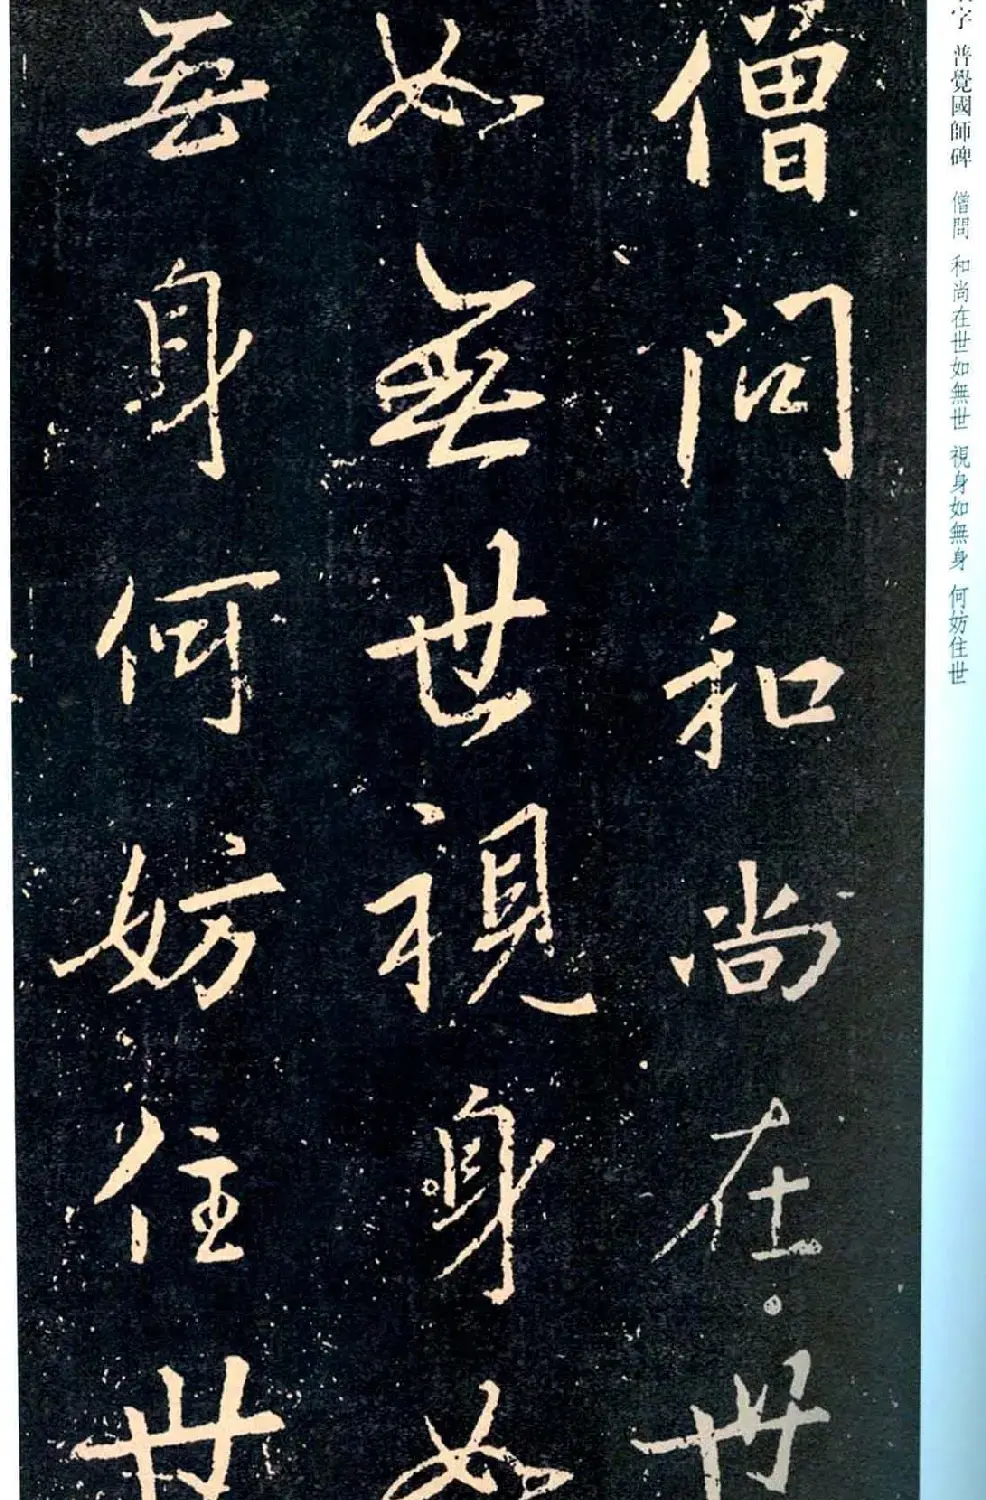 僧問和尚在世
如無世視身如
無身何妨住世
字 普覺國師碑 僧問 和尚在世如無世 視身如無身 何妨住世